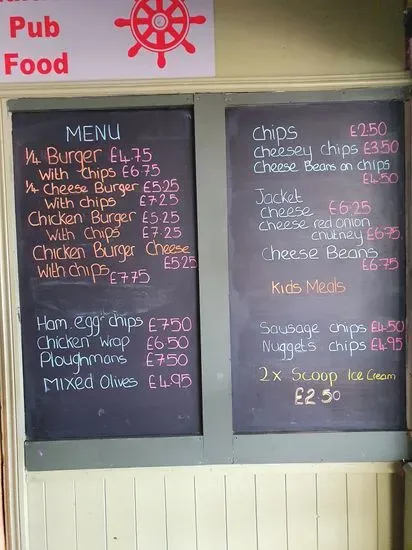 Pub
Food
MENU
1/4 Burger £4.75
With chips £6.75
1/4 Cheese Burger £5.25
With chips £7.25
Chicken Burger £5.25
With chips £7.25
Chicken Burger Cheese
£5.25
With chips
£7.75
Ham egg chips £7.50
Chicken wrap £6.50
Ploughmans £7.50
Mixed Olives £4.95
Chips £2.50
Cheesey chips £3.50
Cheese Beans on chips
£4.50
Jacket
Cheese £6.25
Cheese red onion
chutney £6.75
Cheese Beans
£6.75
Kids Meals
Sausage chips £4.50
Nuggets chips £4.95
2x Scoop Ice Cream
£2.50